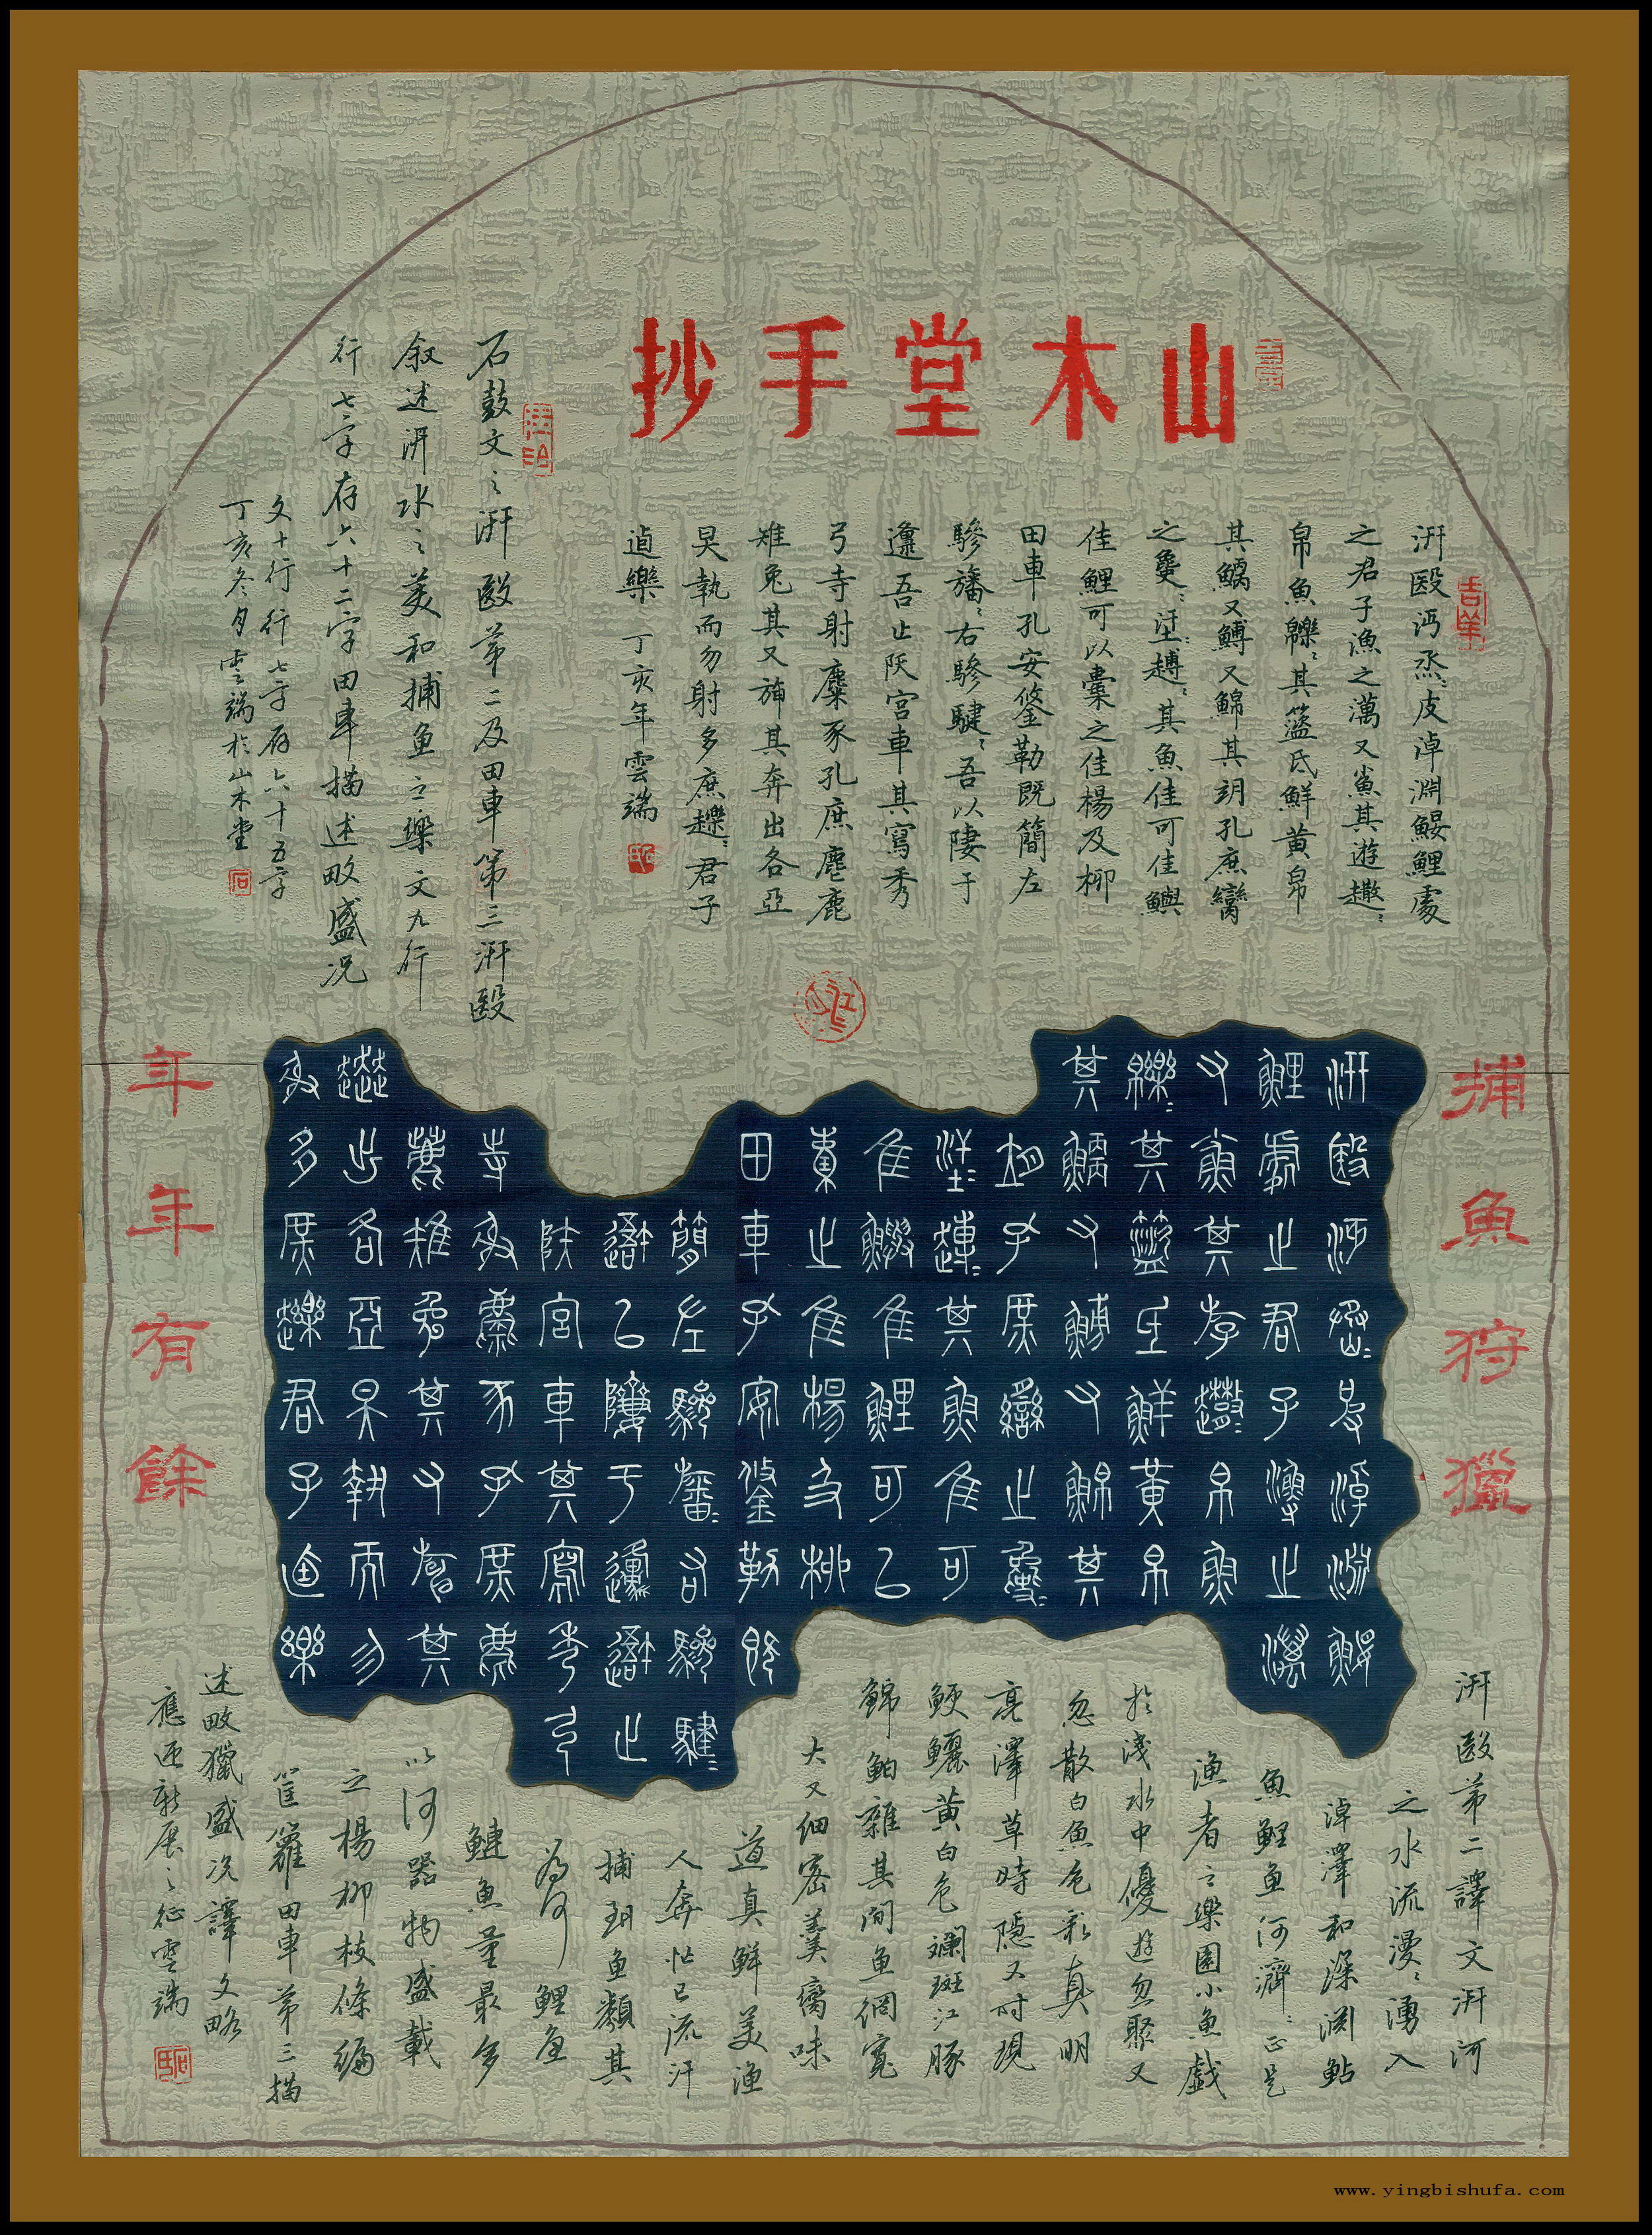 山木堂手抄
汧殹沔烝=皮淖淵鰋鯉處
之君子漁之澫又鯊其遊趩=
帛魚皪=其籃氐鮮黄帛
其鯿又鱄又鯿其胡孔庶臠
之㚟=汗趞=其魚隹可隹鱮
佳鯉可以橐之佳楊及柳
田車孔安鋚勒既簡左
驂旛=右驂騝=吾以隮于
邍吾止陕宮車其寫秀
弓寺射麋豕孔庶麀鹿
雉兔其又旆其奔出各亞
昊執而勿射多庶趮=君子
逌樂 丁亥年雲端
石鼓文之汧殹第二及田車第三汧殹
叙述汧水之美和捕魚之樂文九行
行七字存六十二字田車描述畋盛况
文十行行七字存六十五字
丁亥冬月雲端於山木堂
捕魚狩獵
年年有餘
汧殹沔沔丞=皮淖淵鰋
鯉處之君子漁之澫
又魚其游趩=帛魚
皪=其籃氐鮮黄帛
其鯿又鱄又鯿其
胡孔庶臠之㚟=
汗趞=其魚隹可
隹鱮隹鯉可以
橐之隹楊及柳
田車孔安鋚勒既
簡左驂旛=右驂騝=
吾以隮于邍吾止
陕宮車其寫秀弓
寺射麋豕孔庶麀
鹿雉兔其又旆其
趩出各亞昊執而勿
射多庶趮=君子逌樂
汧殹第二譯文汧河
之水流漫=湧入
淖澤和深渊鮎
魚鯉魚河濟=正是
漁者之樂園小魚戲
於淺水中優遊忽聚又
忽散白魚色彩真明
亮澤草時隱又时現
鯁鱺黄白色斕斑江豚
錦鮊雜其間魚網寬
大又细密羹臠味
道真鮮美漁
人奔忙已流汗
捕魚類其
為何鯉魚
鰱魚量最多
以何器物盛載
之楊柳枝條编
筐籮田車第三描
述畋獵盛况譯文略
應迎新展之征雲端
www.yingbishufa.com